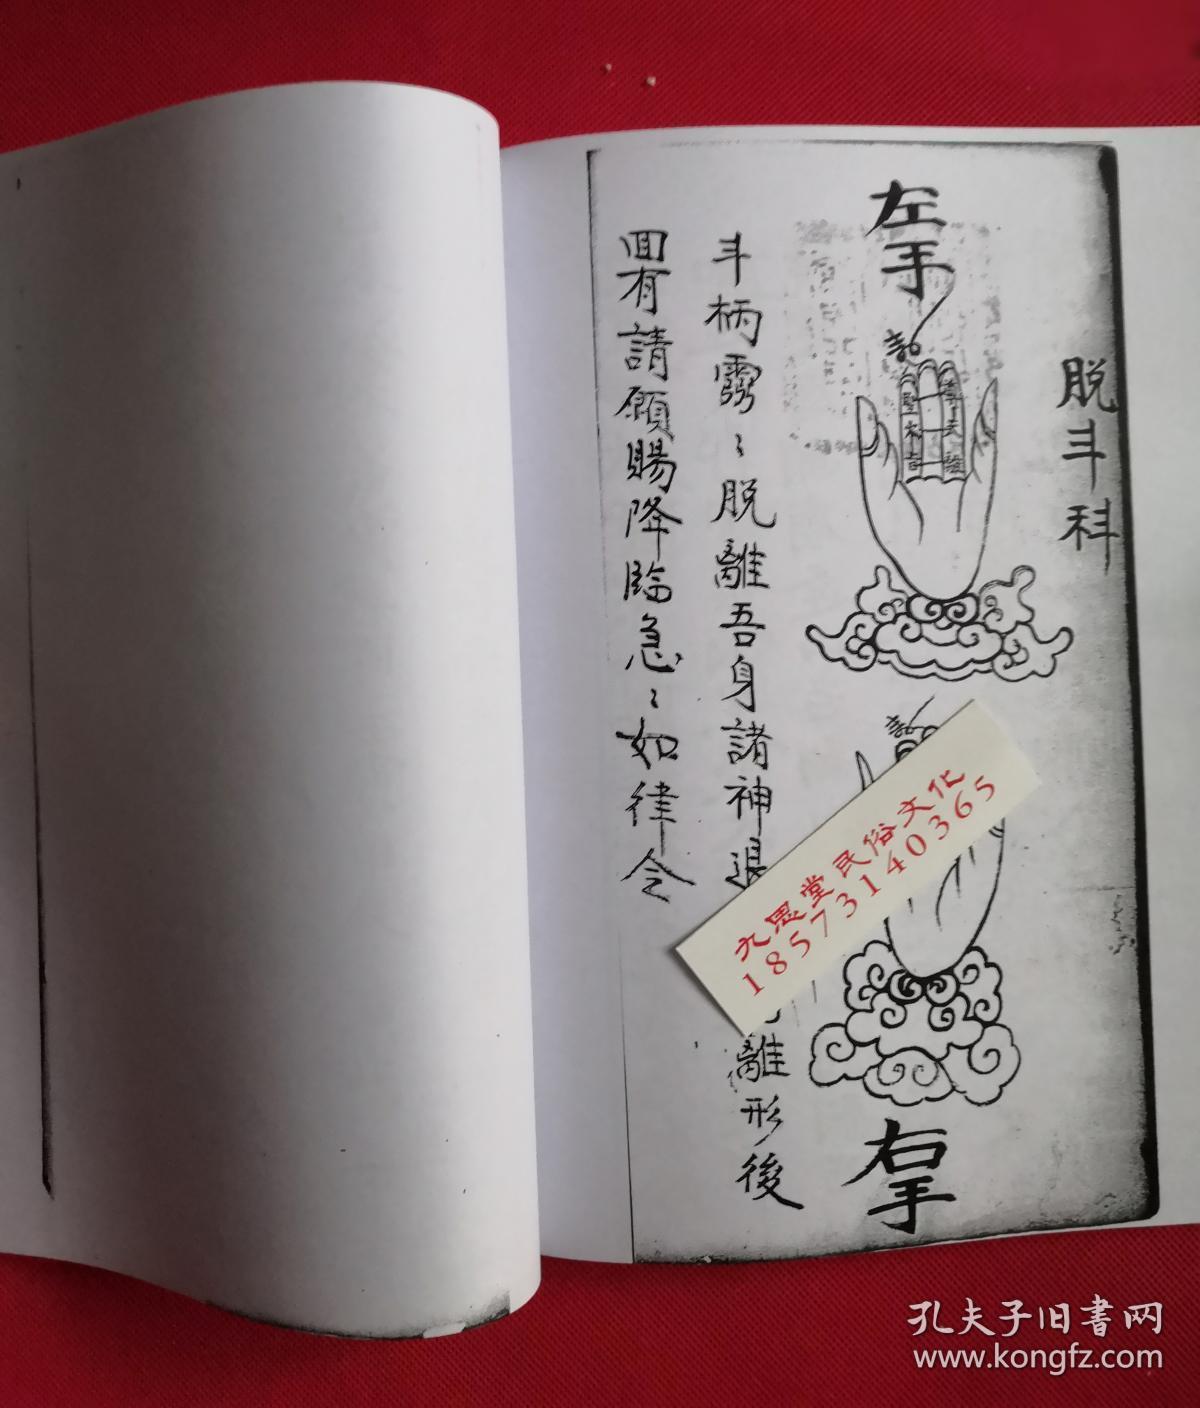 脱斗科
左手
訣
右手
訣
斗柄雾〻脱離吾身諸神退
離形後
回有請願賜降臨急〻如律令
九思堂民俗文化
18573140365
孔夫子旧书网
www.kongfz.com